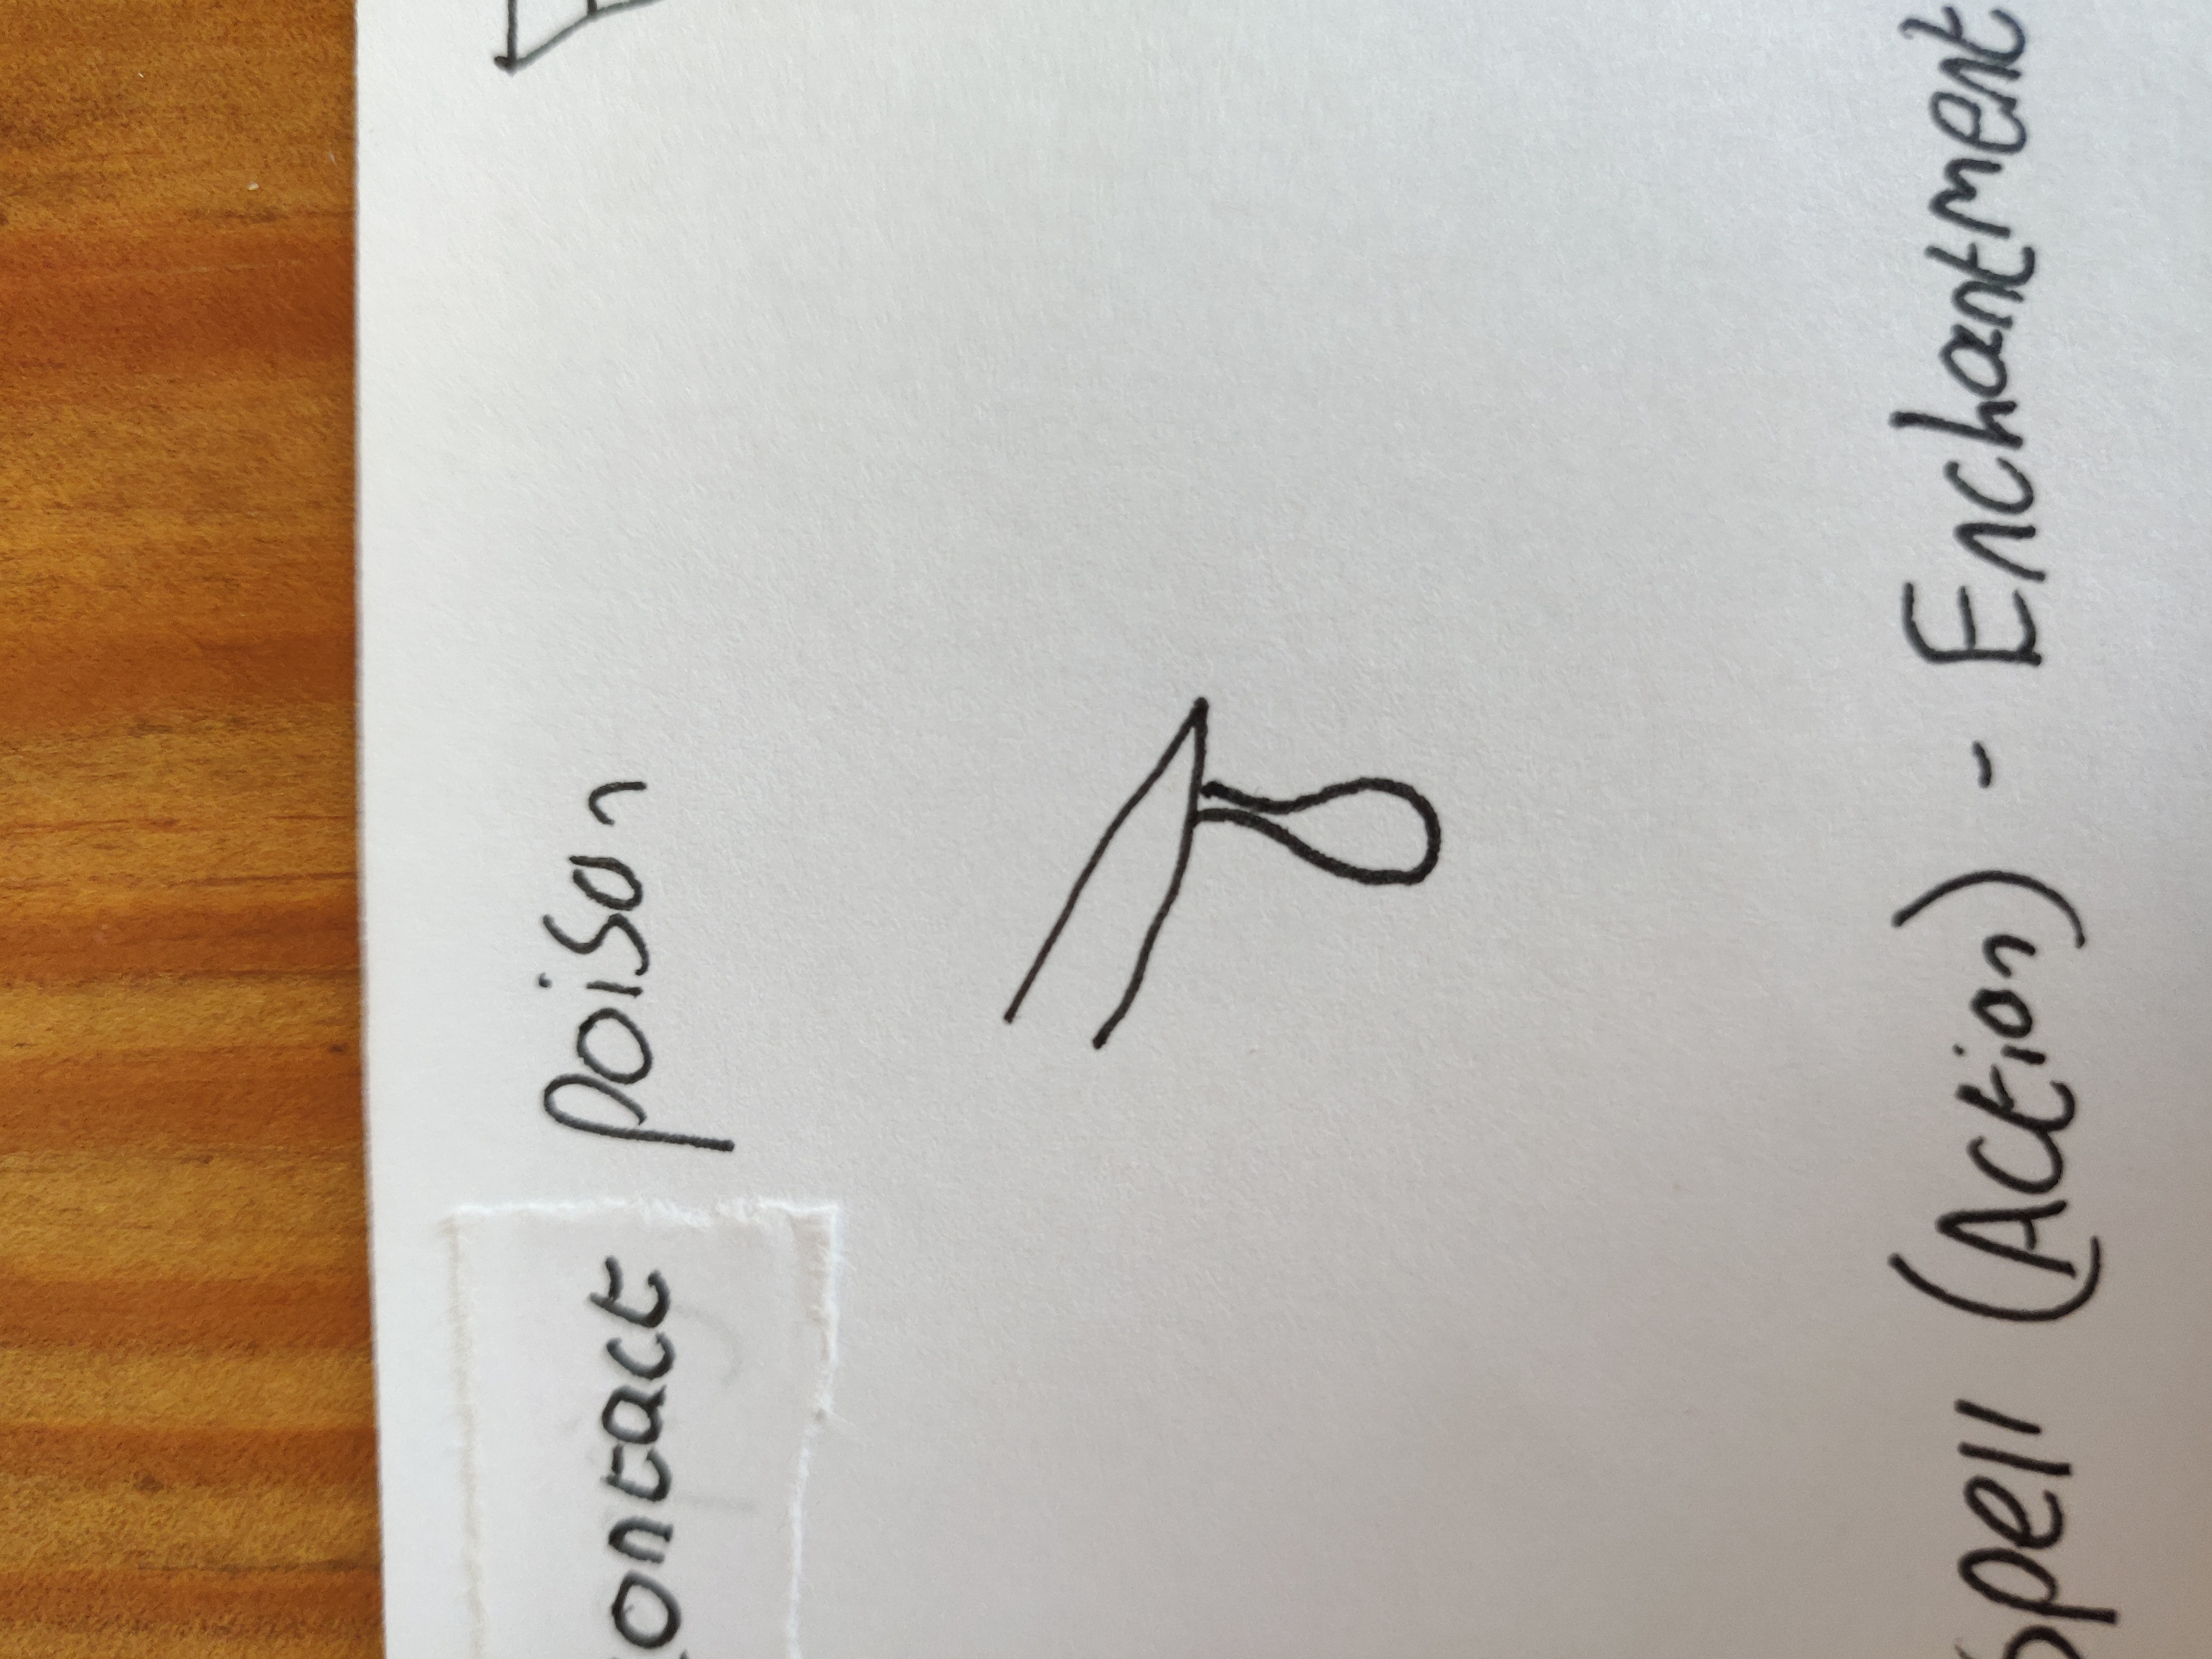 contact poison
spell (Action) - Enchantment